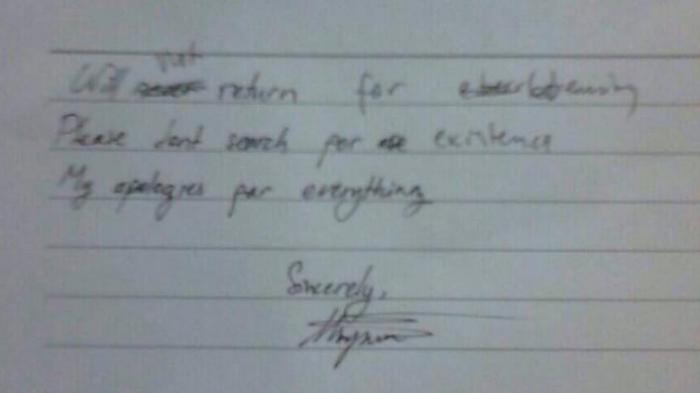 Will not return for
Please dont search for existence
My apologies for everything
Sincerely,